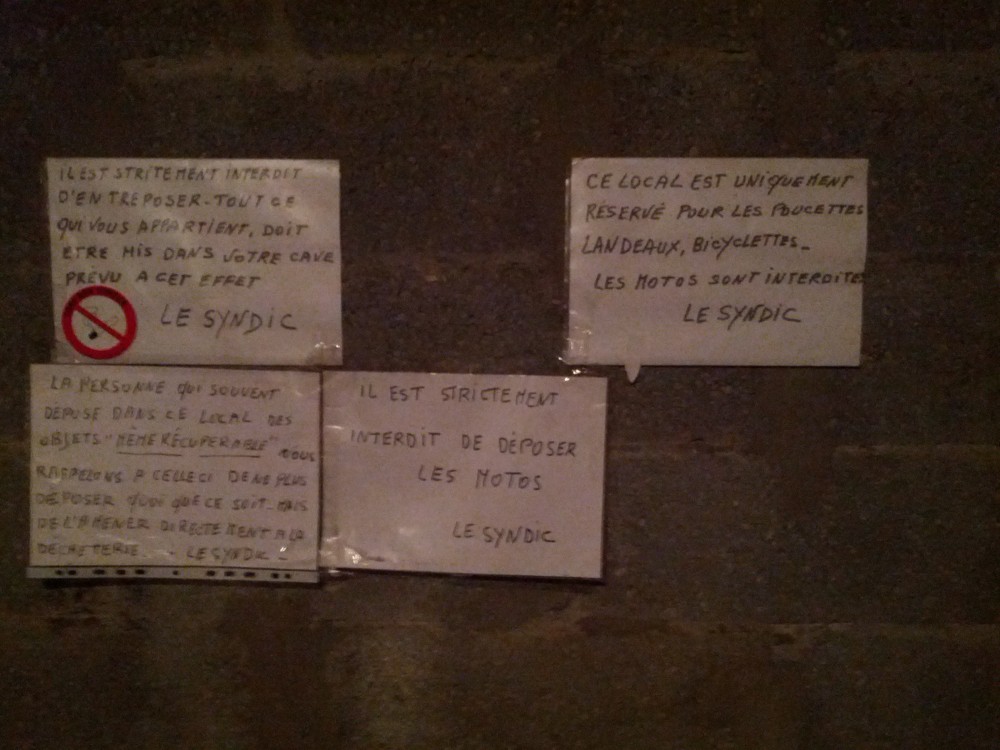 IL EST STRITEMENT INTERDIT
D'ENTREPOSER - TOUT CE
QUI VOUS APPARTIENT, DOIT
ETRE MIS DANS VOTRE CAVE
PRÉVU A CET EFFET
LE SYNDIC
CE LOCAL EST UNIQUEMENT
RÉSERVÉ POUR LES POUCETTES
LANDEAUX, BICYCLETTES_
LES MOTOS SONT INTERDITES
LE SYNDIC
LA PERSONNE QUI SOUVENT
DEPOSE DANS CE LOCAL DES
OBJETS "MÊME RÉCUPERABLE" NOUS
RAPPELONS A CELLECI DE NE PLUS
DEPOSER QUOI QUE CE SOIT - MAIS
DE L'AMENER DIRECTEMENT A LA
DÉCHETERIE - LE SYNDIC
IL EST STRICTEMENT
INTERDIT DE DÉPOSER
LES MOTOS
LE SYNDIC